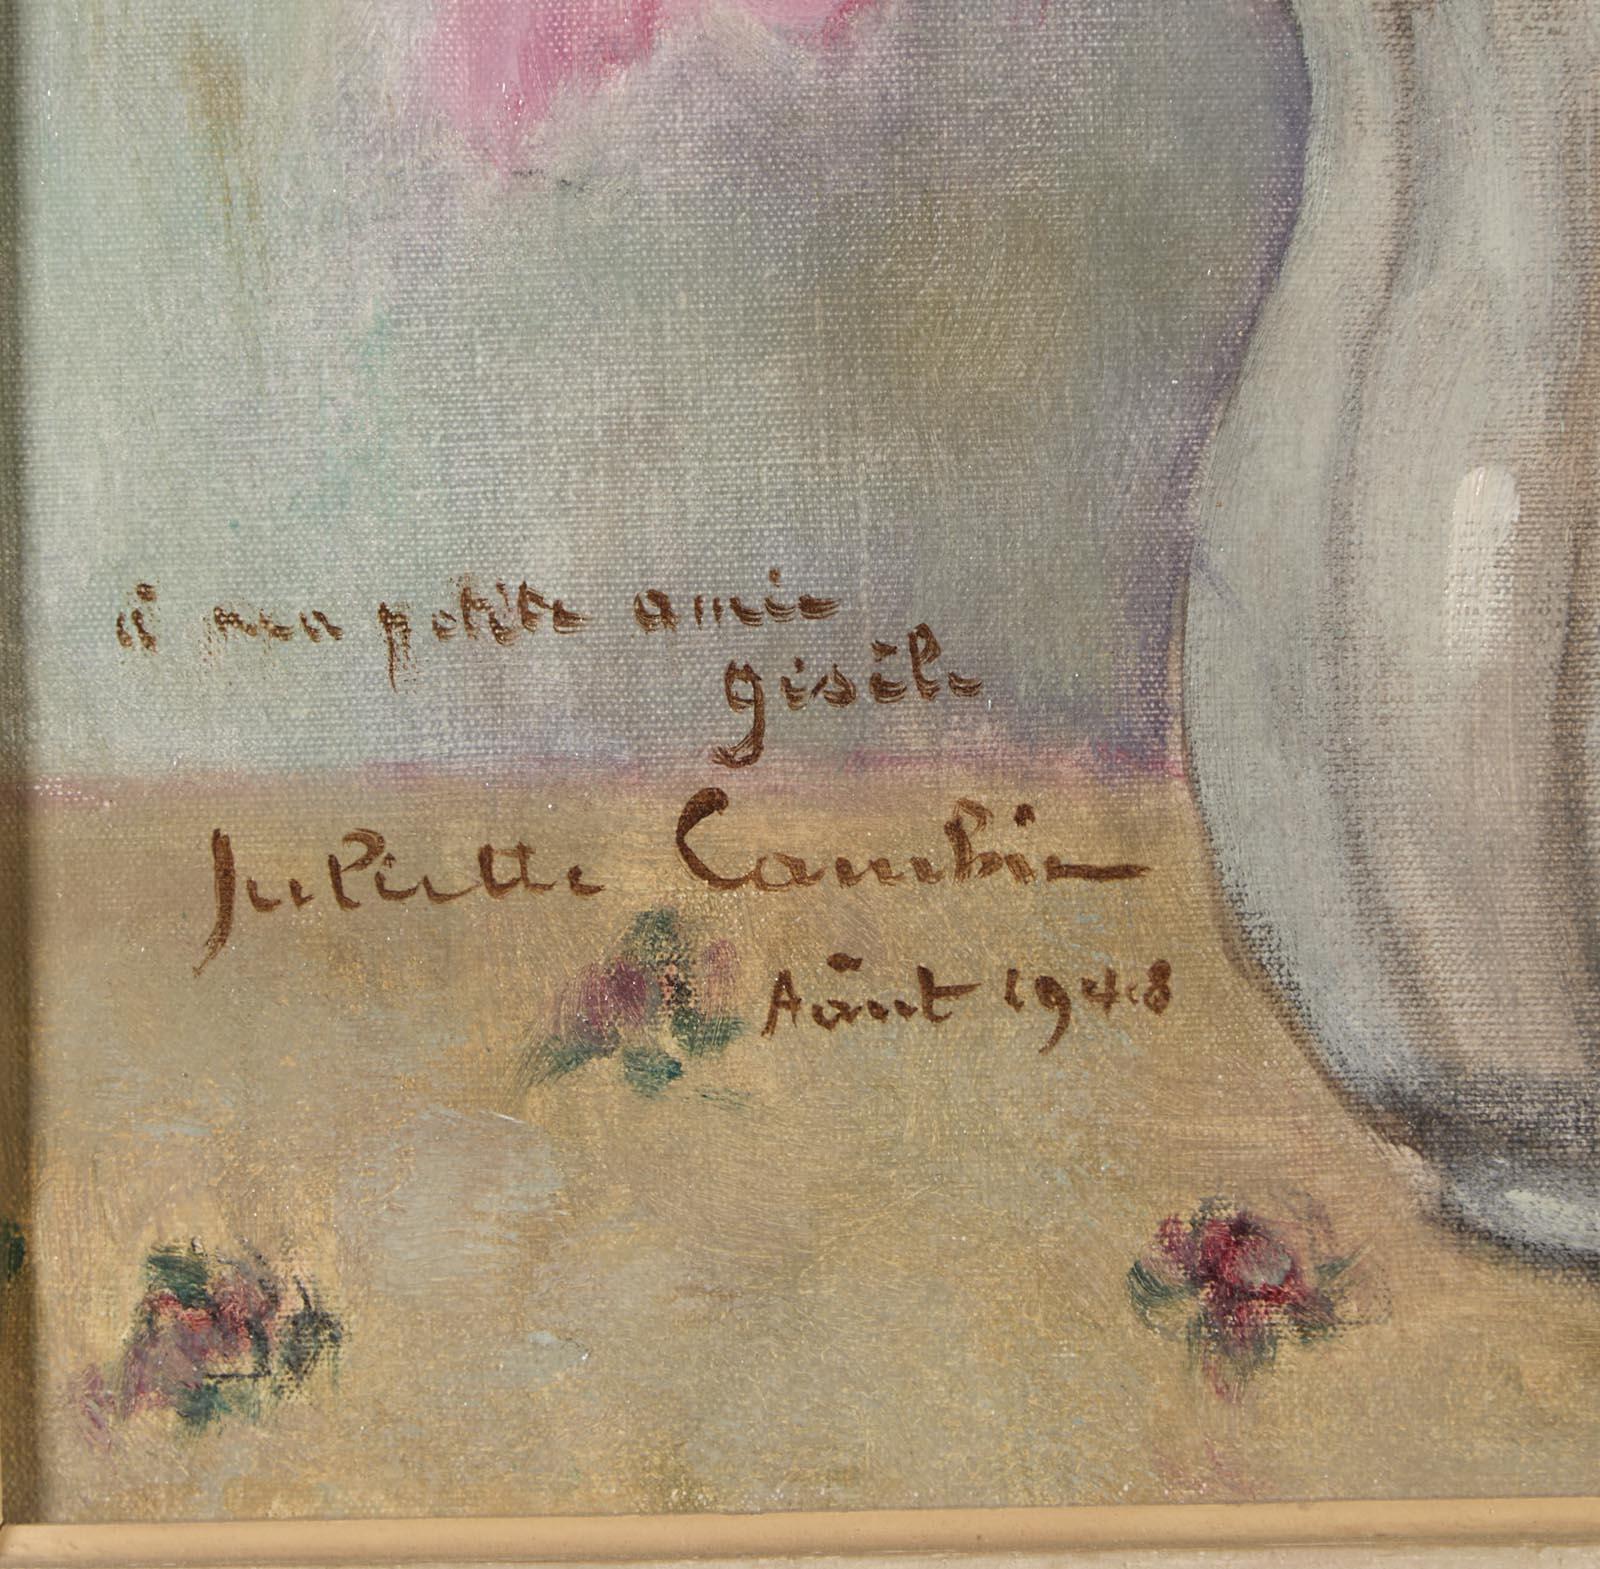 à ma petite amie
gisèle
Juliette Cambier
Août 1948